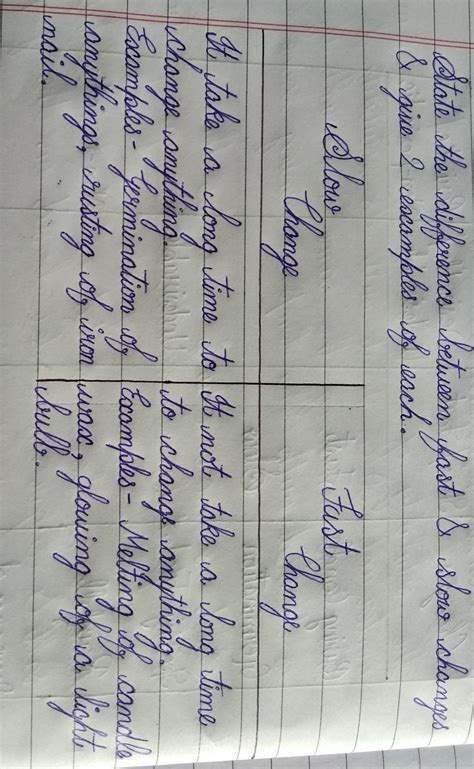 State the difference between fast & slow changes
& give 2 examples of each.
Slow
Change
It take a long time to
change anything.
Examples- Germination of
anythings, rusting of iron
nail.
Fast
Change
It not take a long time
to change anything.
Examples- Melting of candle
wax, glowing of a light
bulb.